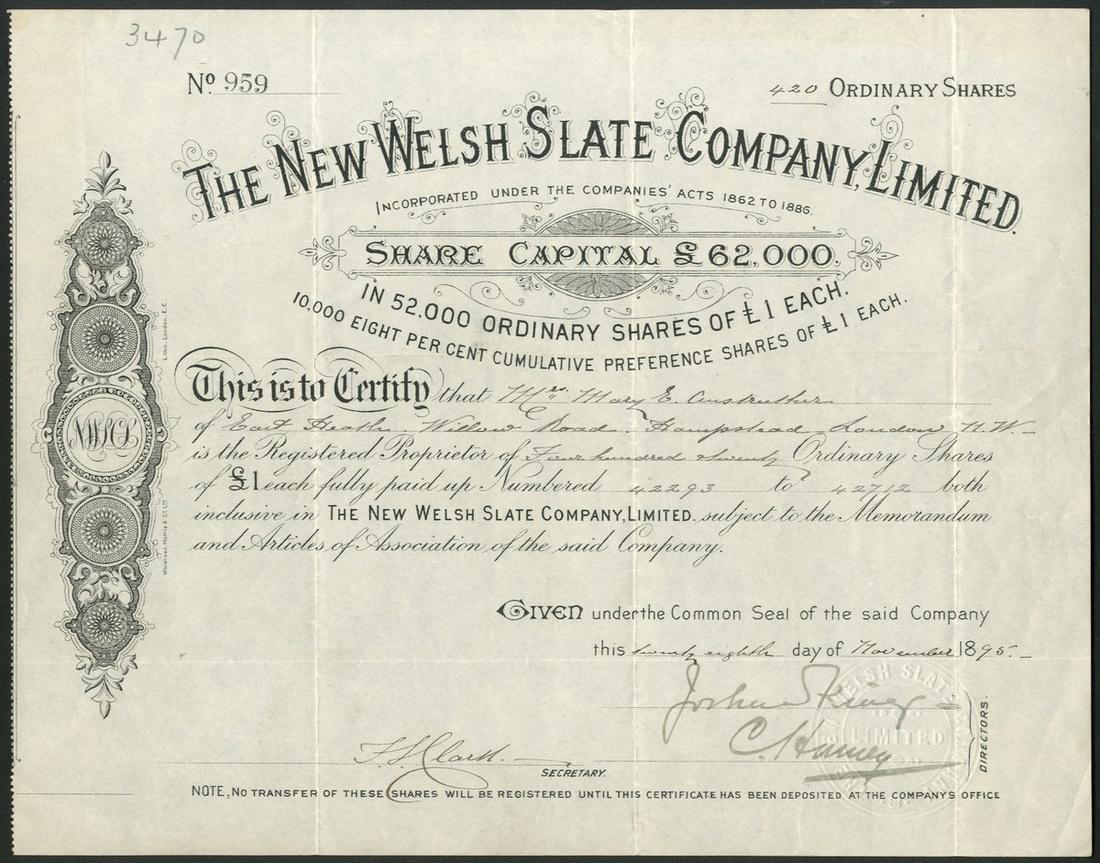 3470
No. 959
420 ORDINARY SHARES
THE NEW WELSH SLATE COMPANY, LIMITED.
INCORPORATED UNDER THE COMPANIES' ACTS 1862 TO 1886.
SHARE CAPITAL £62,000.
IN 52,000 ORDINARY SHARES OF £1 EACH.
10,000 EIGHT PER CENT CUMULATIVE PREFERENCE SHARES OF £1 EACH.
This is to Certify that Mrs. Mary E. Anstruther
of East Heath, Willow Road, Hampstead, London N.W.
is the Registered Proprietor of Four hundred & twenty Ordinary Shares
of £1 each fully paid up Numbered 42293 to 42712 both
inclusive in THE NEW WELSH SLATE COMPANY, LIMITED. subject to the Memorandum
and Articles of Association of the said Company.
GIVEN under the Common Seal of the said Company
this twenty eighth day of November 1895.
WELSH SLATE
LIMITED
DIRECTORS.
SECRETARY.
NOTE, NO TRANSFER OF THESE SHARES WILL BE REGISTERED UNTIL THIS CERTIFICATE HAS BEEN DEPOSITED AT THE COMPANY'S OFFICE